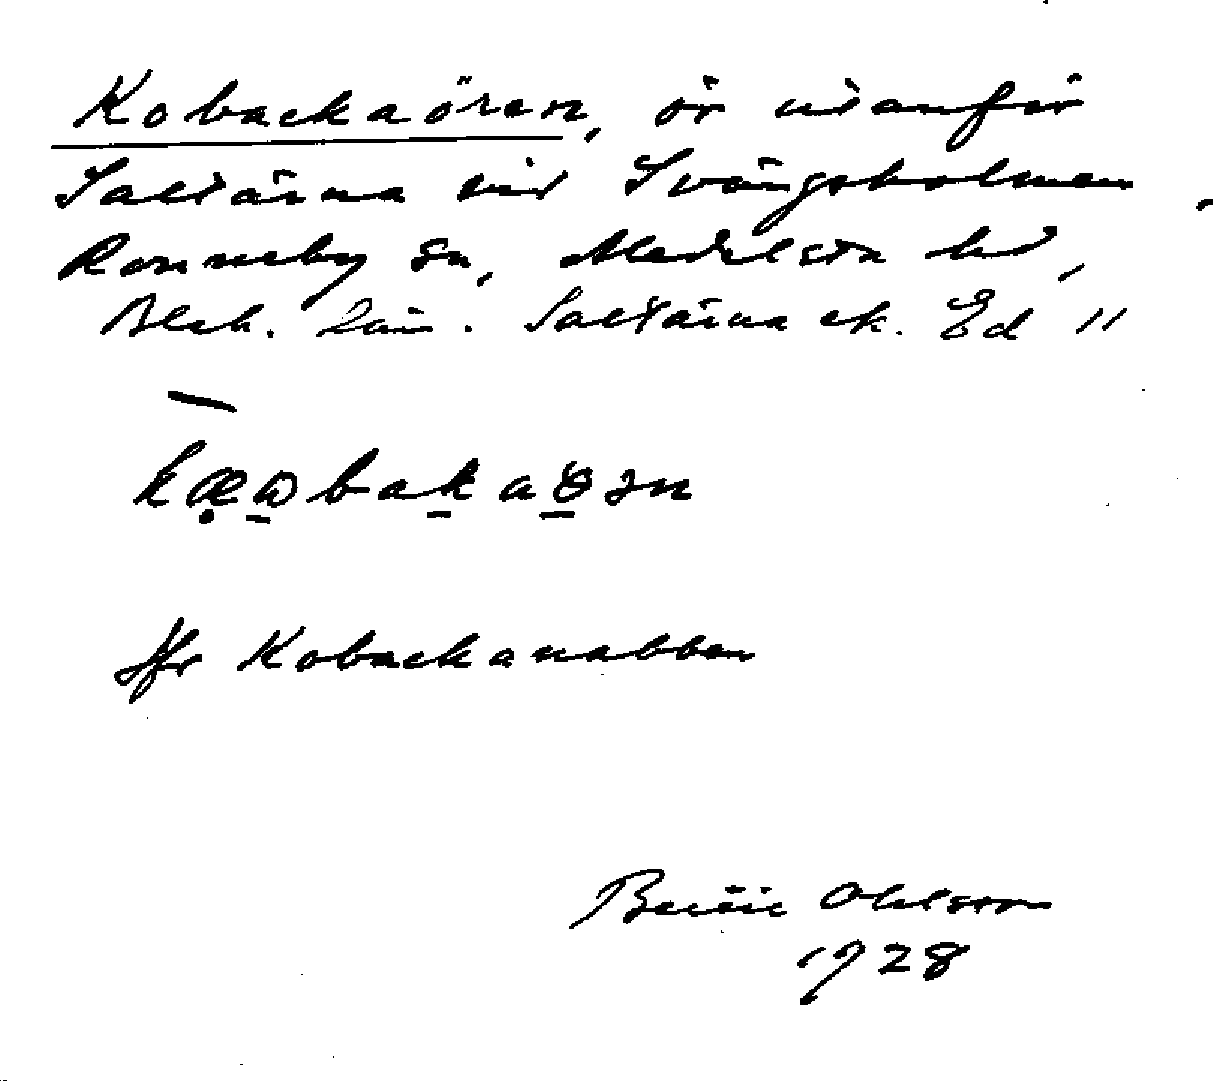 Kobackaören, ör utanför
Saltärna vid Svängsholmen,
Ronneby sn, Medelsta hd,
Blek. län. Saltärna ek. Bl. Ed 11
Jfr Kobackanabben
Bertil Ohlsson
1928